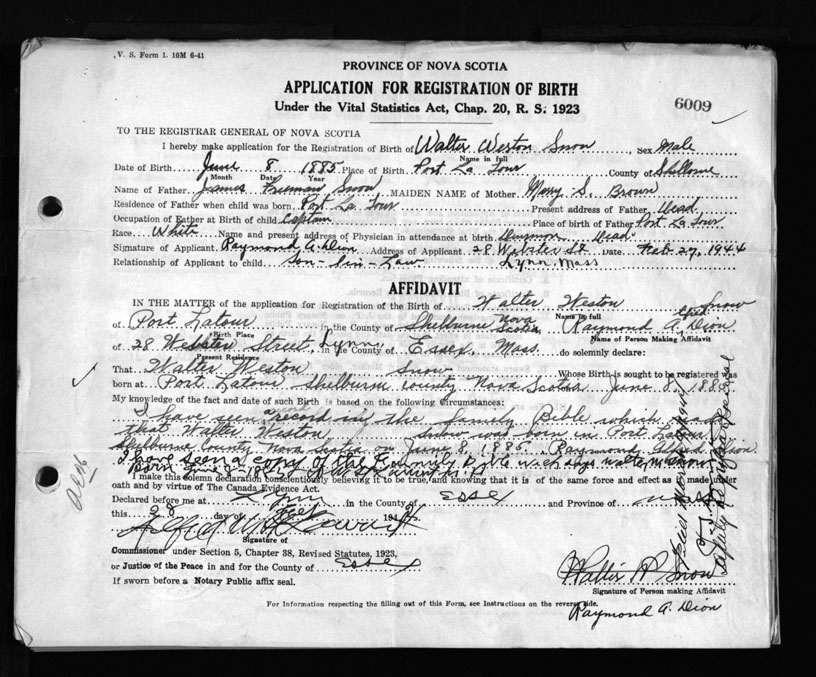 V. S. Form 1. 10M 6-41
PROVINCE OF NOVA SCOTIA
APPLICATION FOR REGISTRATION OF BIRTH
Under the Vital Statistics Act, Chap. 20, R. S. 1923
6009
TO THE REGISTRAR GENERAL OF NOVA SCOTIA
I hereby make application for the Registration of Birth of Walter Weston Snow Sex Male
Name in full
Date of Birth June 8 1885 Place of Birth Port La Tour County of Shelburne
Month Date Year
Name of Father James Freeman Snow MAIDEN NAME of Mother Mary S. Brown
Residence of Father when child was born Port La Tour Present address of Father Dead
Occupation of Father at Birth of child Captain Place of birth of Father Port La Tour
Race White Name and present address of Physician in attendance at birth Dead
Signature of Applicant Raymond A. Dion Address of Applicant 28 Webster St Date Feb 27, 1944
Relationship of Applicant to child Son-in-Law Lynn Mass
AFFIDAVIT
IN THE MATTER of the application for Registration of the Birth of Walter Weston Snow
Name in full
of Port Latour in the County of Shelburne Nova Scotia Raymond A. Dion
Birth Place Name of Person Making Affidavit
of 28 Webster Street, Lynn in the County of Essex, Mass. do solemnly declare:
Present Residence
That Walter Weston Snow Whose Birth is sought to be registered was
born at Port Latour Shelburne County Nova Scotia June 8, 1885
My knowledge of the fact and date of such Birth is based on the following Circumstances:
I have seen a record in the family Bible which
that Walter Weston Snow was born in Port Latour
Shelburne County Nova Scotia on June 8, 1885. Raymond Dion
I have seen a copy of the Family Bible
Born June 8 1885
I make this solemn declaration conscientiously believing it to be true, and knowing that it is of the same force and effect as if made under
oath and by virtue of The Canada Evidence Act.
Declared before me at Lynn in the County of Essex and Province of Mass
this 28 day of Feb 194
Signature of
Commissioner under Section 5, Chapter 38, Revised Statutes, 1923,
or Justice of the Peace in and for the County of Essex
If sworn before a Notary Public affix seal.
Walter W Snow
Signature of Person making Affidavit
For Information respecting the filling out of this Form, see Instructions on the reverse side.
Raymond A. Dion